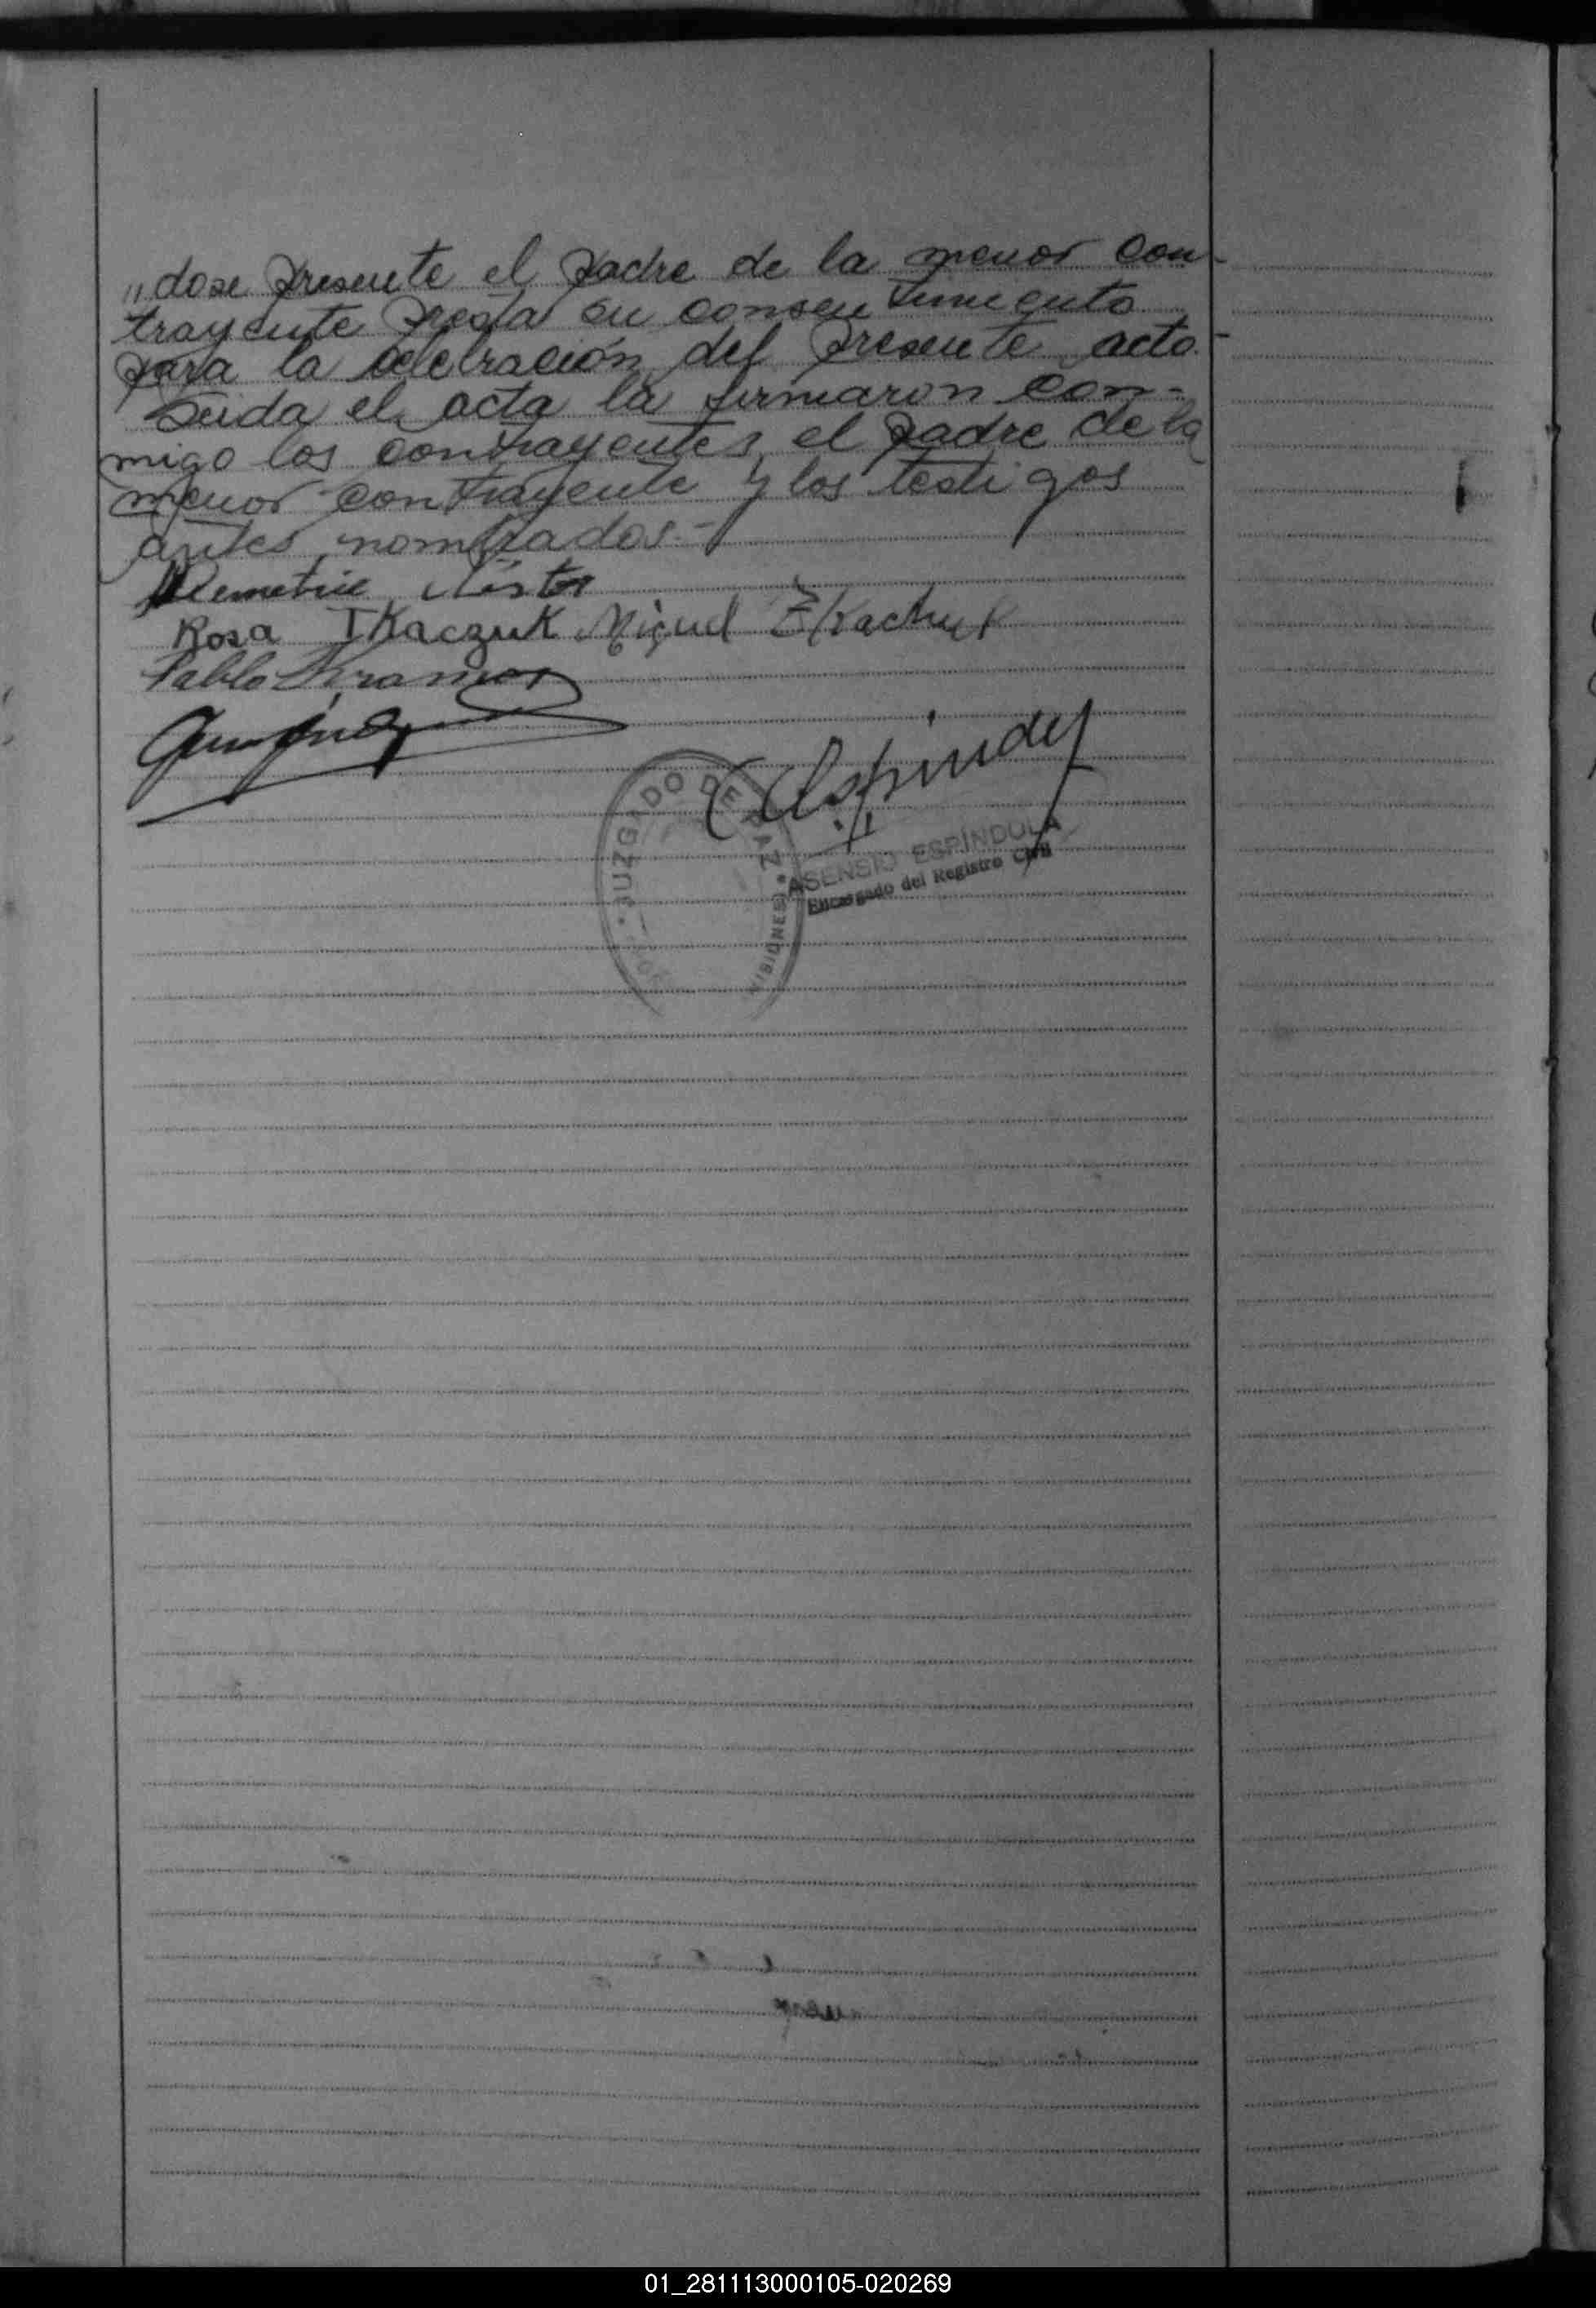 "dose presente el padre de la menor con-
trayente presta su consentimiento
para la celebración del presente acto.-
Leida el acta la firmaron con-
migo los contrayentes, el padre de la
menor contrayente y los testigos
antes nombrados.-
Demetrio
Rosa TKaczuk Miguel
Pablo
Espindola
JUZGADO DE PAZ
MISIONES
ASENSIO ESPÍNDOLA
Encargado del Registro Civil
01_281113000105-020269